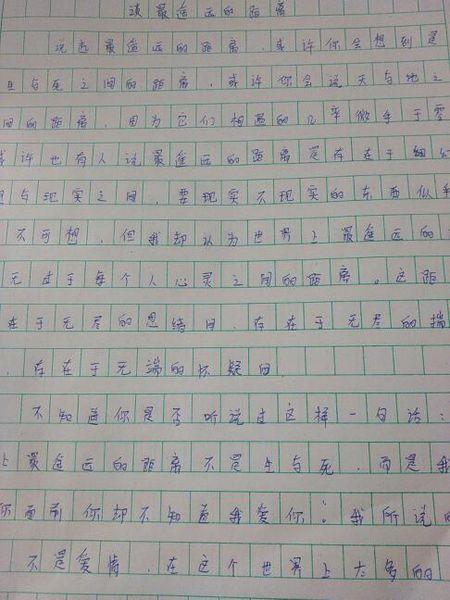 谈最遥远的距离
说起最遥远的距离，或许你会想到是
生与死之间的距离，或许你会说天与地之
间的距离，因为它们相遇的几率微乎于零
或许也有人说最遥远的距离是存在于
与现实之间，要现实不现实的东西似乎
不可想，但我却认为世界上最遥远的
无过于每个人心灵之间的距离。这距
在于无尽的思绪间，存在于无尽的揣
，存在于无端的怀疑间
不知道你是否听说过这样一句话：
上最遥远的距离不是生与死，而是我
你面前你却不知道我爱你。我所说的
不是爱情，在这个世界上太多的